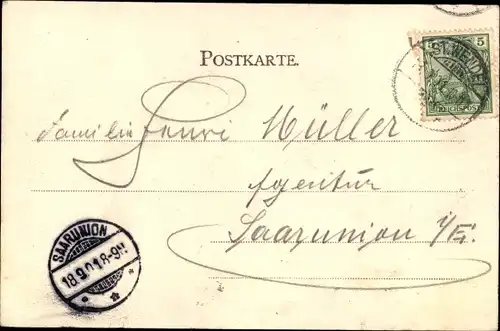 5
ST. WENDEL
REICHSPOST
POSTKARTE.
Familie Henri Müller
Agentur
Saarunion i/E.
SAARUNION
18.9.01.8-9N